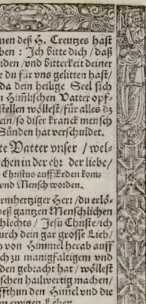 nen deß H. Creutzes hast
hen : Ich bitte dich / daß
rden / vnd bitterkeit deiner
e du für vns gelitten hast /
da dein heilige Seel sich
n Himlischen Vatter opf-
stellen wöllest / für alles
ein / so diser kranck mensch
Sünden hat verschuldet.
te Vatter vnser / wel-
chen in der ehr der liebe /
Christus auff Erden koms
vnd Mensch worden.
rmhertziger Herr / du erlö-
eß gantzen Menschlichen
schlechts / Jesu Christe / ich
durch dein gar grosse Lieb /
von Himmel herab auff
ch zu manigfaltigem vnd
den gebracht hat / wöllest
schen hailwertig machen /
ffthun den Himel vnd die